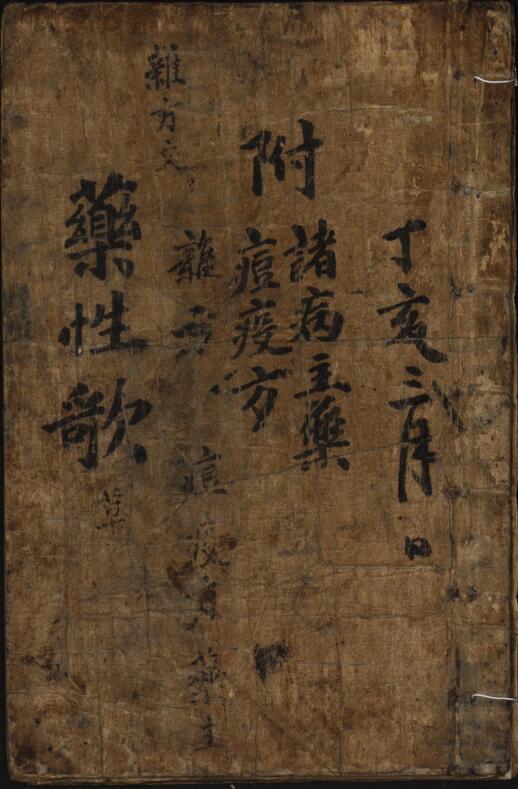 丁亥三月 日
附
諸病主藥
痘疫方
雜方 痘疫方 藥主
雜方文
藥性歌
草